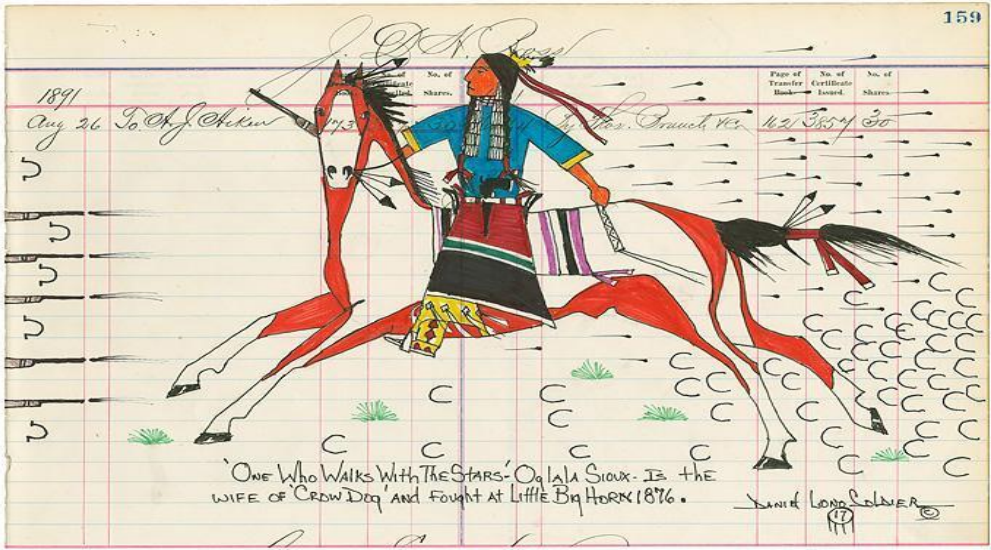 159
J. D. H. Ross
No. of
Shares.
Page of
Transfer
Book
No. of
Certificate
Issued.
No. of
Shares.
1891
Aug 26 To A. J. Aiken 162 3857 30
'One Who Walks With The Stars'- Oglala Sioux - Is the
wife of 'Crow Dog' and fought at Little Big Horn 1876.
Daniel Long Soldier ©
17